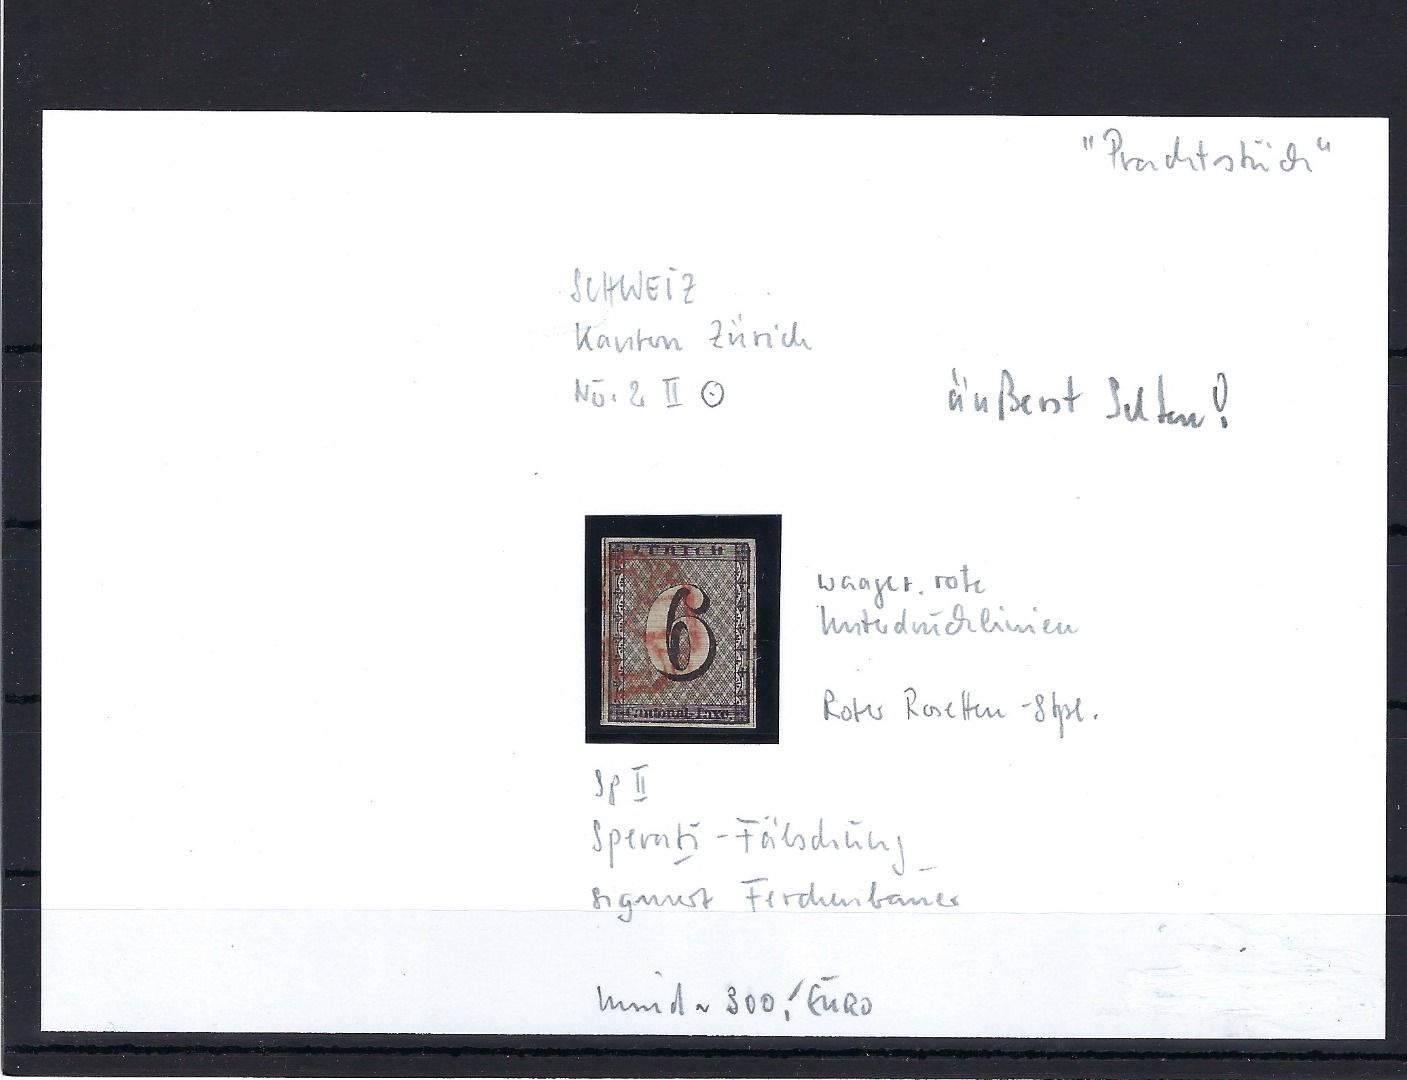 "Prachtstück"
SCHWEIZ
Kanton Zürich
No. 2 II ⊙
äußerst Selten!
ZÜRICH
6
Cantonal-Taxe
waager. rote
Unterdrucklinien
Roter Rosetten-Stpl.
Sp II
Sperati-Fälschung
signiert Ferchenbauer
mind ~ 300,! EURO